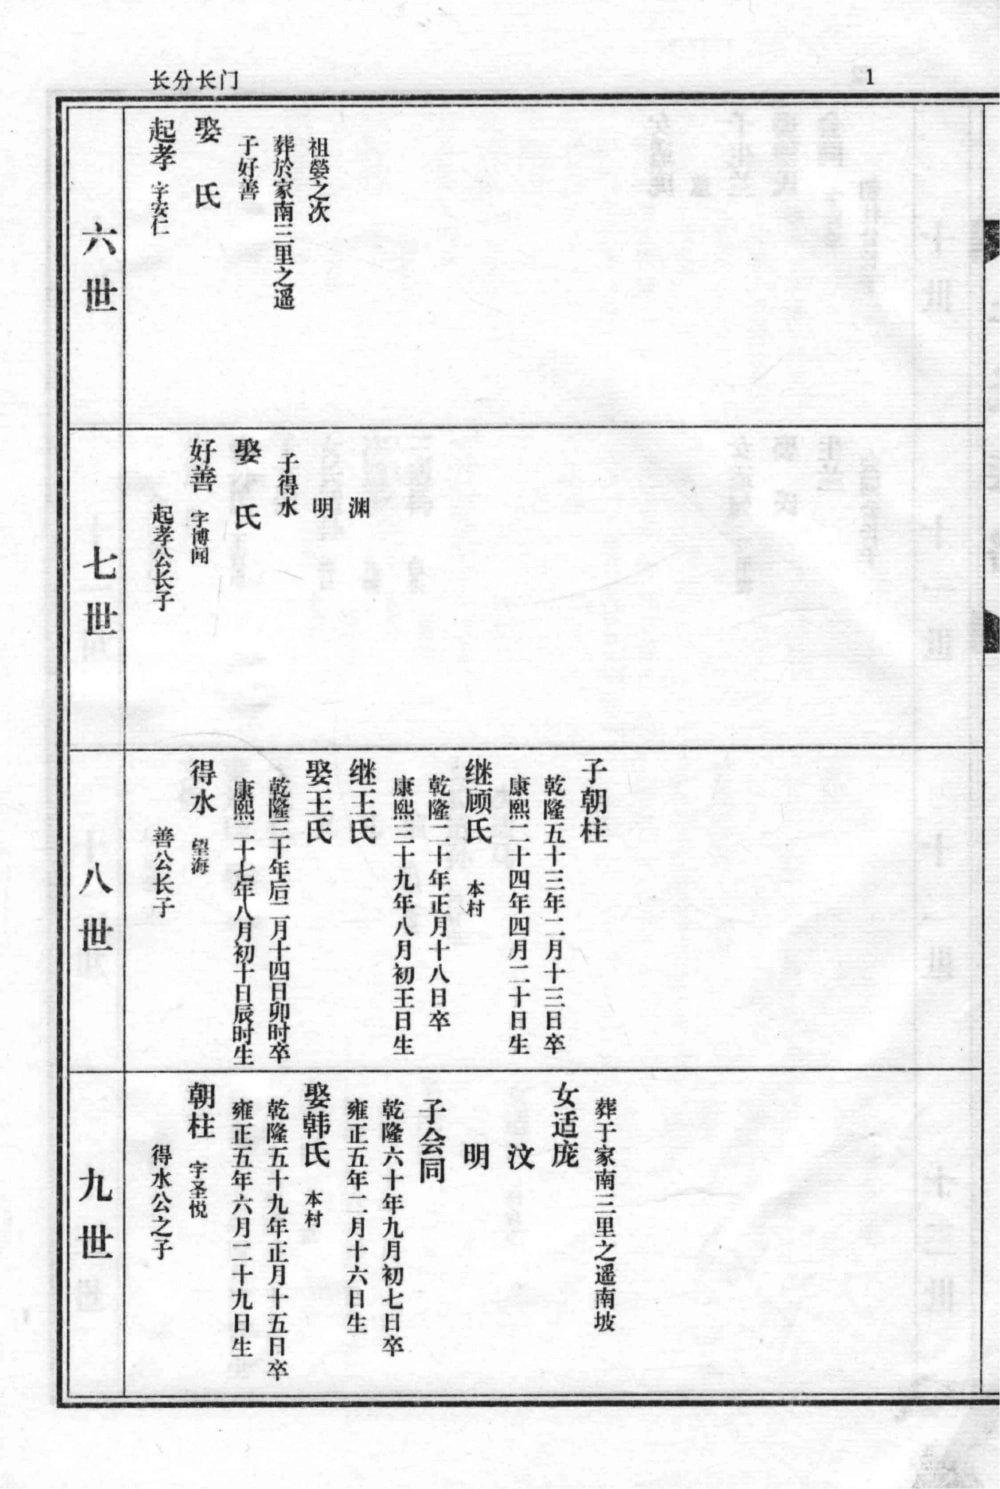 长分长门
1
六世
起孝 字安仁
娶 氏
子好善
葬於家南三里之遥
祖塋之次
七世
起孝公长子
好善 字博闻
娶 氏
子得水
明
渊
八世
善公长子
得水 望海
康熙二十七年八月初十日辰时生
乾隆三十年后二月十四日卯时卒
娶王氏
继王氏
康熙三十九年八月初王日生
乾隆二十年正月十八日卒
继顾氏 本村
康熙二十四年四月二十日生
乾隆五十三年二月十三日卒
子朝柱
九世
得水公之子
朝柱 字圣悦
雍正五年六月二十九日生
乾隆五十九年正月十五日卒
娶韩氏 本村
雍正五年二月十六日生
乾隆六十年九月初七日卒
子会同
明
汶
女适庞
葬于家南三里之遥南坡